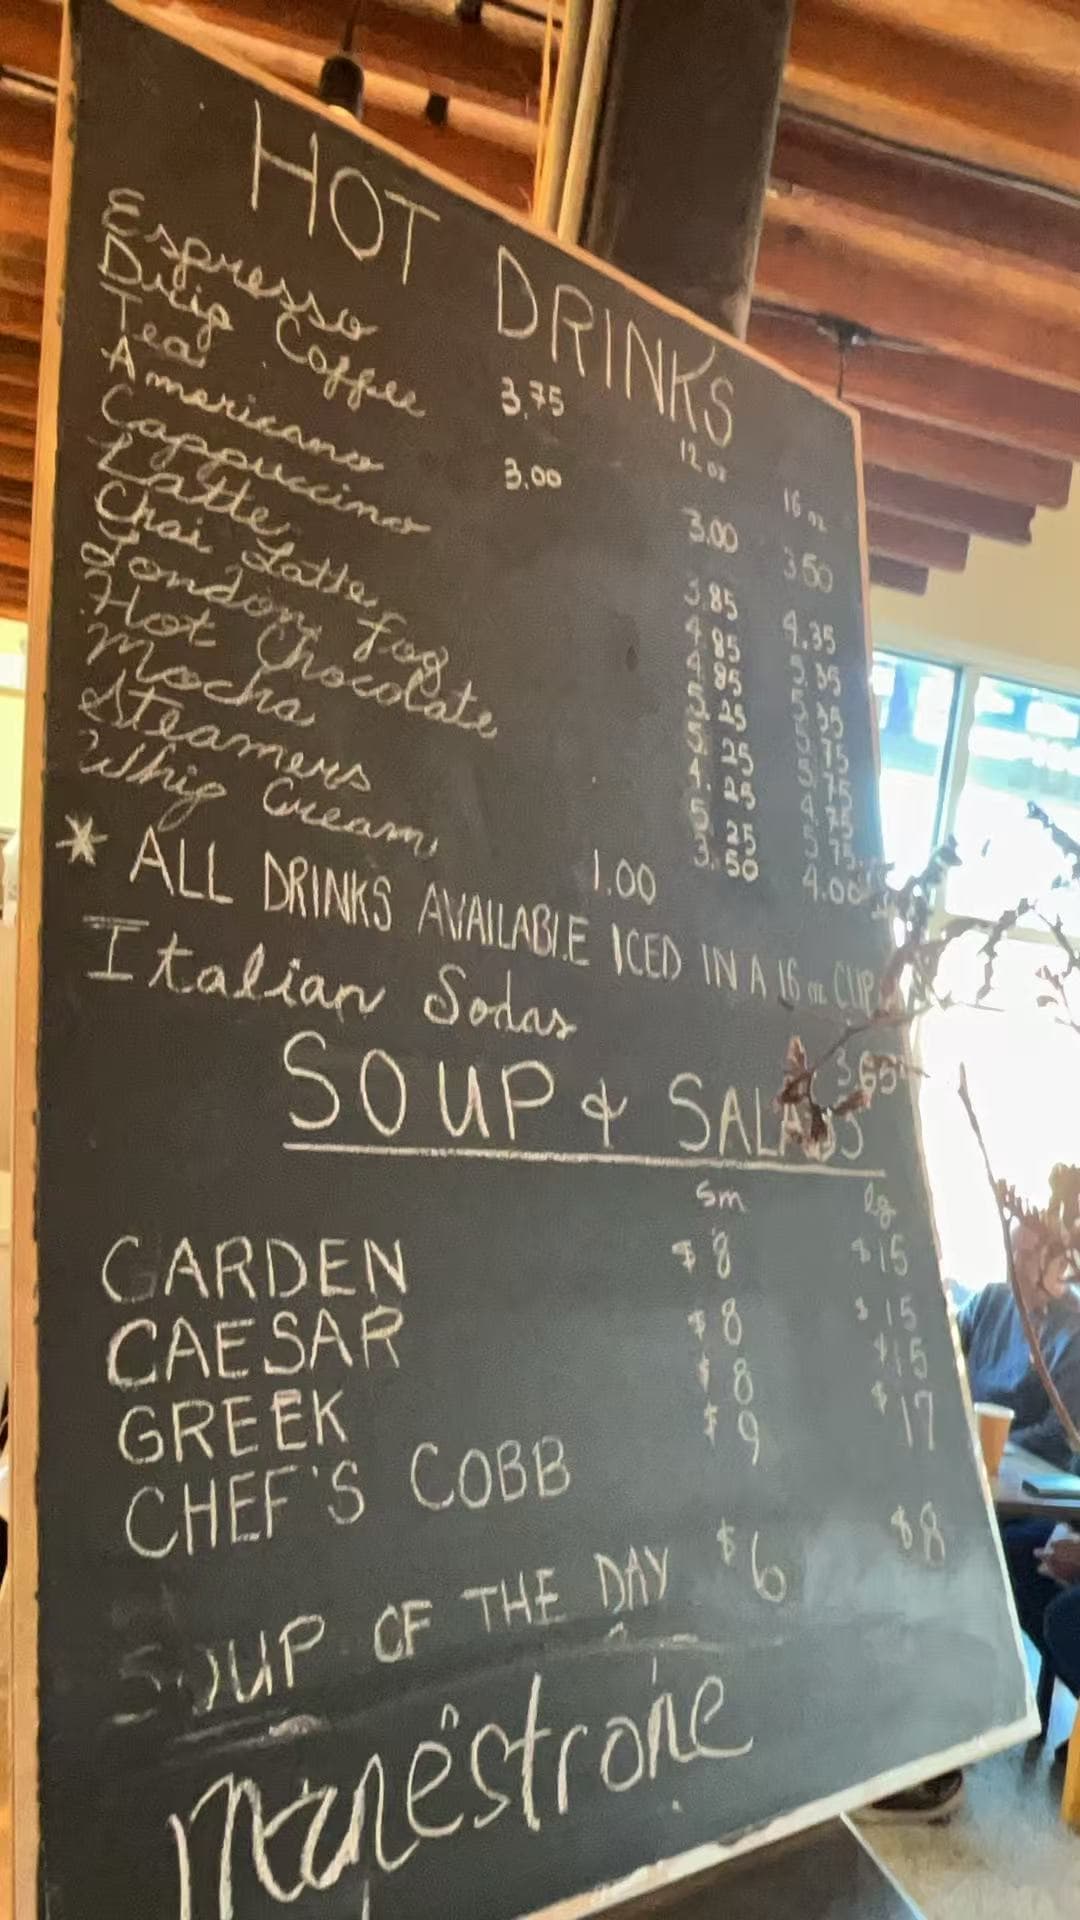 HOT DRINKS
12 oz 16 oz
Espresso 3.75
Drip Coffee 3.00 3.50
Tea 3.00
Americano 3.85 4.35
Cappuccino 4.85 5.35
Latte 4.85 5.35
Chai Latte 5.25 5.75
London Fog 5.25 5.75
Hot Chocolate 4.25 4.75
Mocha 5.25 5.75
Steamers 3.50 4.00
Whip Cream 1.00
* ALL DRINKS AVAILABLE ICED IN A 16 oz CUP
Italian Sodas 3.65
SOUP & SALADS
sm lg
GARDEN $8 $15
CAESAR $8 $15
GREEK $8 $15
CHEF'S COBB $9 $17
SOUP OF THE DAY $6 $8
Minestrone